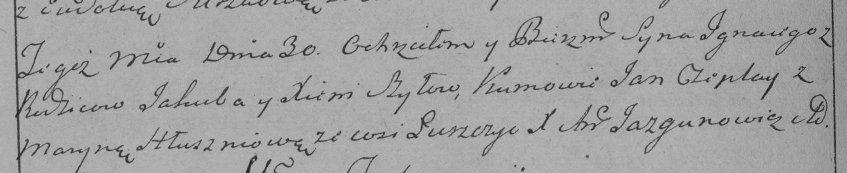 Tegoż Mca Dnia 30. Ochrzciłem y Bierzm Syna Ignacego z
Rodzicow Jakuba y Xieni Ryłow, Kumowie Jan Czeplay z
Maryną Hłuszniową ze wsi Puszczy X An Jazgunowicz AD.